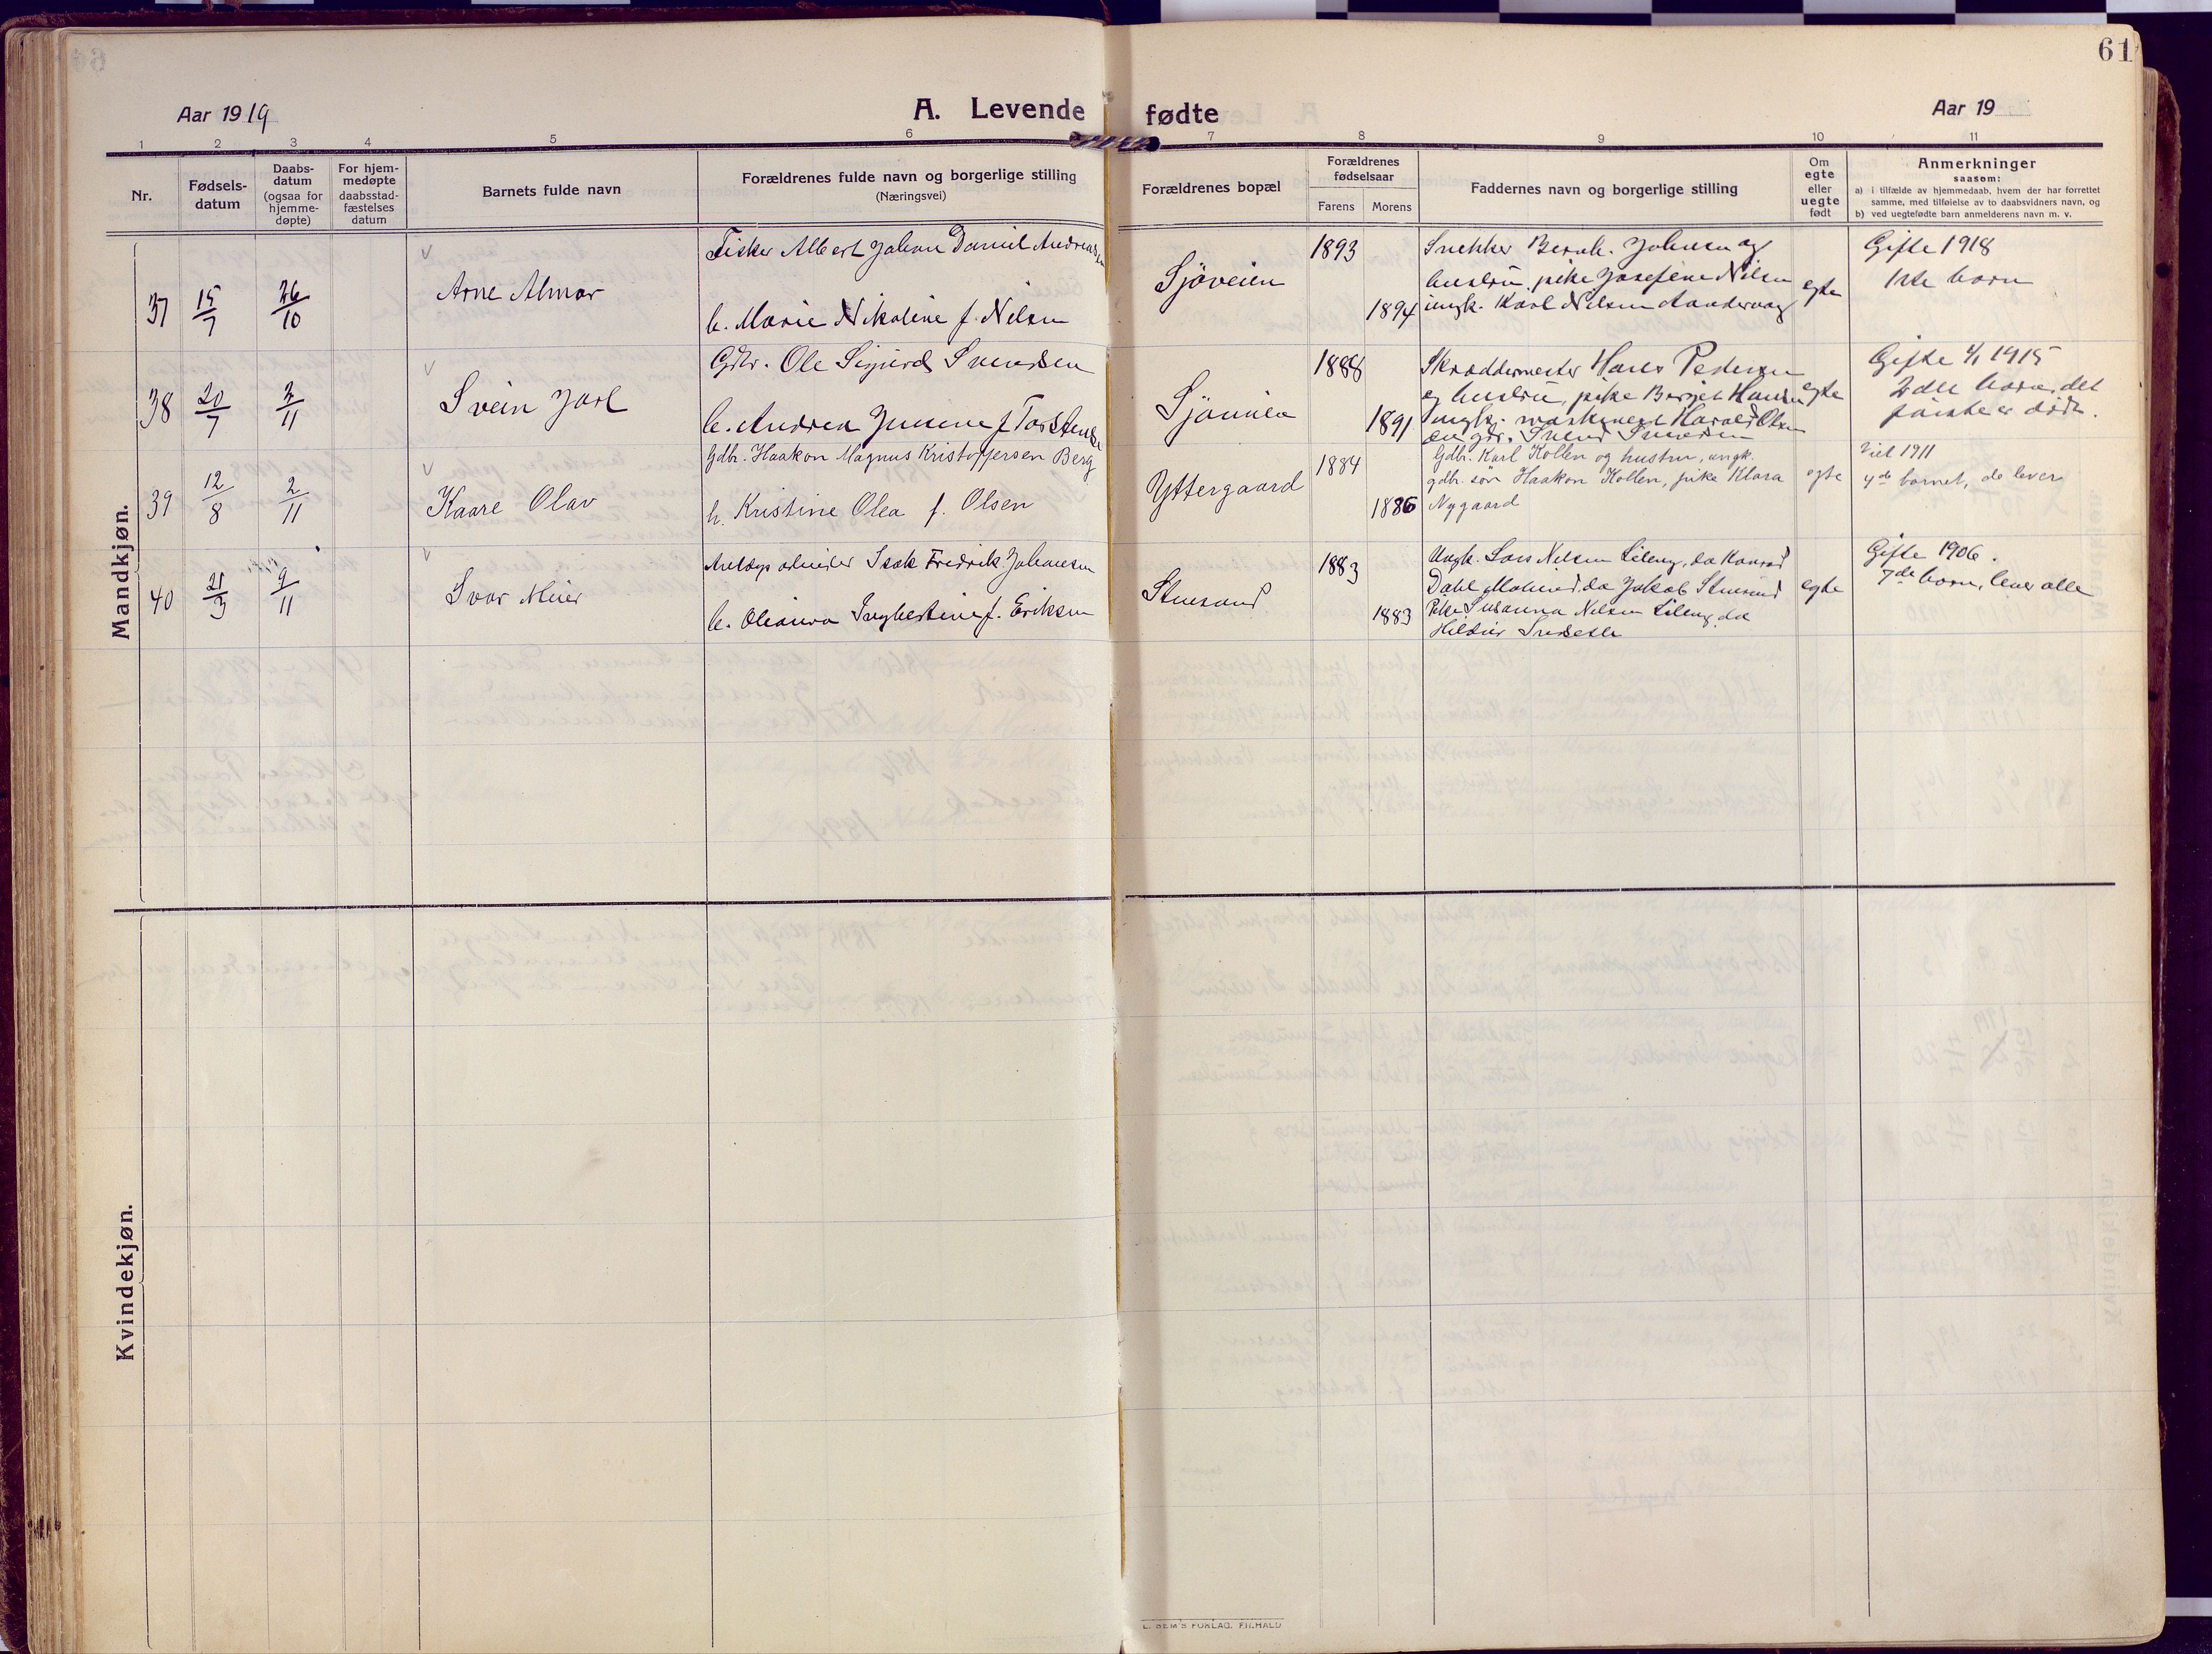 61
Aar 1919
A. Levende fødte
Aar 19
1 2 3 4 5 6 7 8 9 10 11
Nr.
Fødsels-
datum
Daabs-
datum
(ogsaa for
hjemme-
døpte)
For hjem-
medøpte
daabsstad-
fæstelses
datum
Barnets fulde navn
Forældrenes fulde navn og borgerlige stilling
(Næringsvei)
Forældrenes bopæl
Forældrenes
fødselsaar
Farens Morens
Faddernes navn og borgerlige stilling
Om
egte
eller
uegte
født
Anmerkninger
saasom:
a) i tilfælde av hjemmedaab, hvem der har forrettet
samme, med tilføielse av to daabsvidners navn, og
b) ved uegtefødte barn anmelderens navn m. v.
Mandkjøn.
37 15/7 26/10
Arne Almar
Fisker Albert Johan Daniel Andreassen
h. Marie Nikoline f. Nilsen
Sjøveien
1893
1894
Snekker Bernh. Johnsen og
hustru, pike Josefine Nilsen
ungk. Karl Nilsen
egte
Gifte 1918
1ste barn
38 20/7 2/11
Svein Jarl
Gdbr. Ole Sigurd Svendsen
h. Andrea Jensine f. Torstensen
1888
1891
Skræddermester Hans Pedersen
og hustru, pike Borgel Hansen
ungk. maskinist Harald Olsen
og gdr. Svend Svendsen
egte
Gifte 4/1 1915
2det barn, det
første er dødt.
39 12/8 2/11
Kaare Olav
Gdbr. Haakon Magnus Kristoffersen Berg
h. Kristine Olea f. Olsen
Yttergaard
1884
1886
Gdbr. Karl Kollen og hustru, ungk.
gdbr. søn Haakon Kollen, pike Klara
Nygaard
egte
Viet 1911
4de barnet, de lever
40 21/3 9/11
Ivar Meier
Anlægsarbeider Isak Fredrik Johansen
h. Oleanna Ingbertine f. Eriksen
1883
1883
Ungk. Lars Nilsen Lileng, do Konrad
Dahl Molund, do Jakob
Pike Susanna Nilsen Lileng, do
Hildur
egte
Gifte 1906.
7de barn, lever alle
Kvindekjøn.
E. SEM'S FORLAG, F.HALD